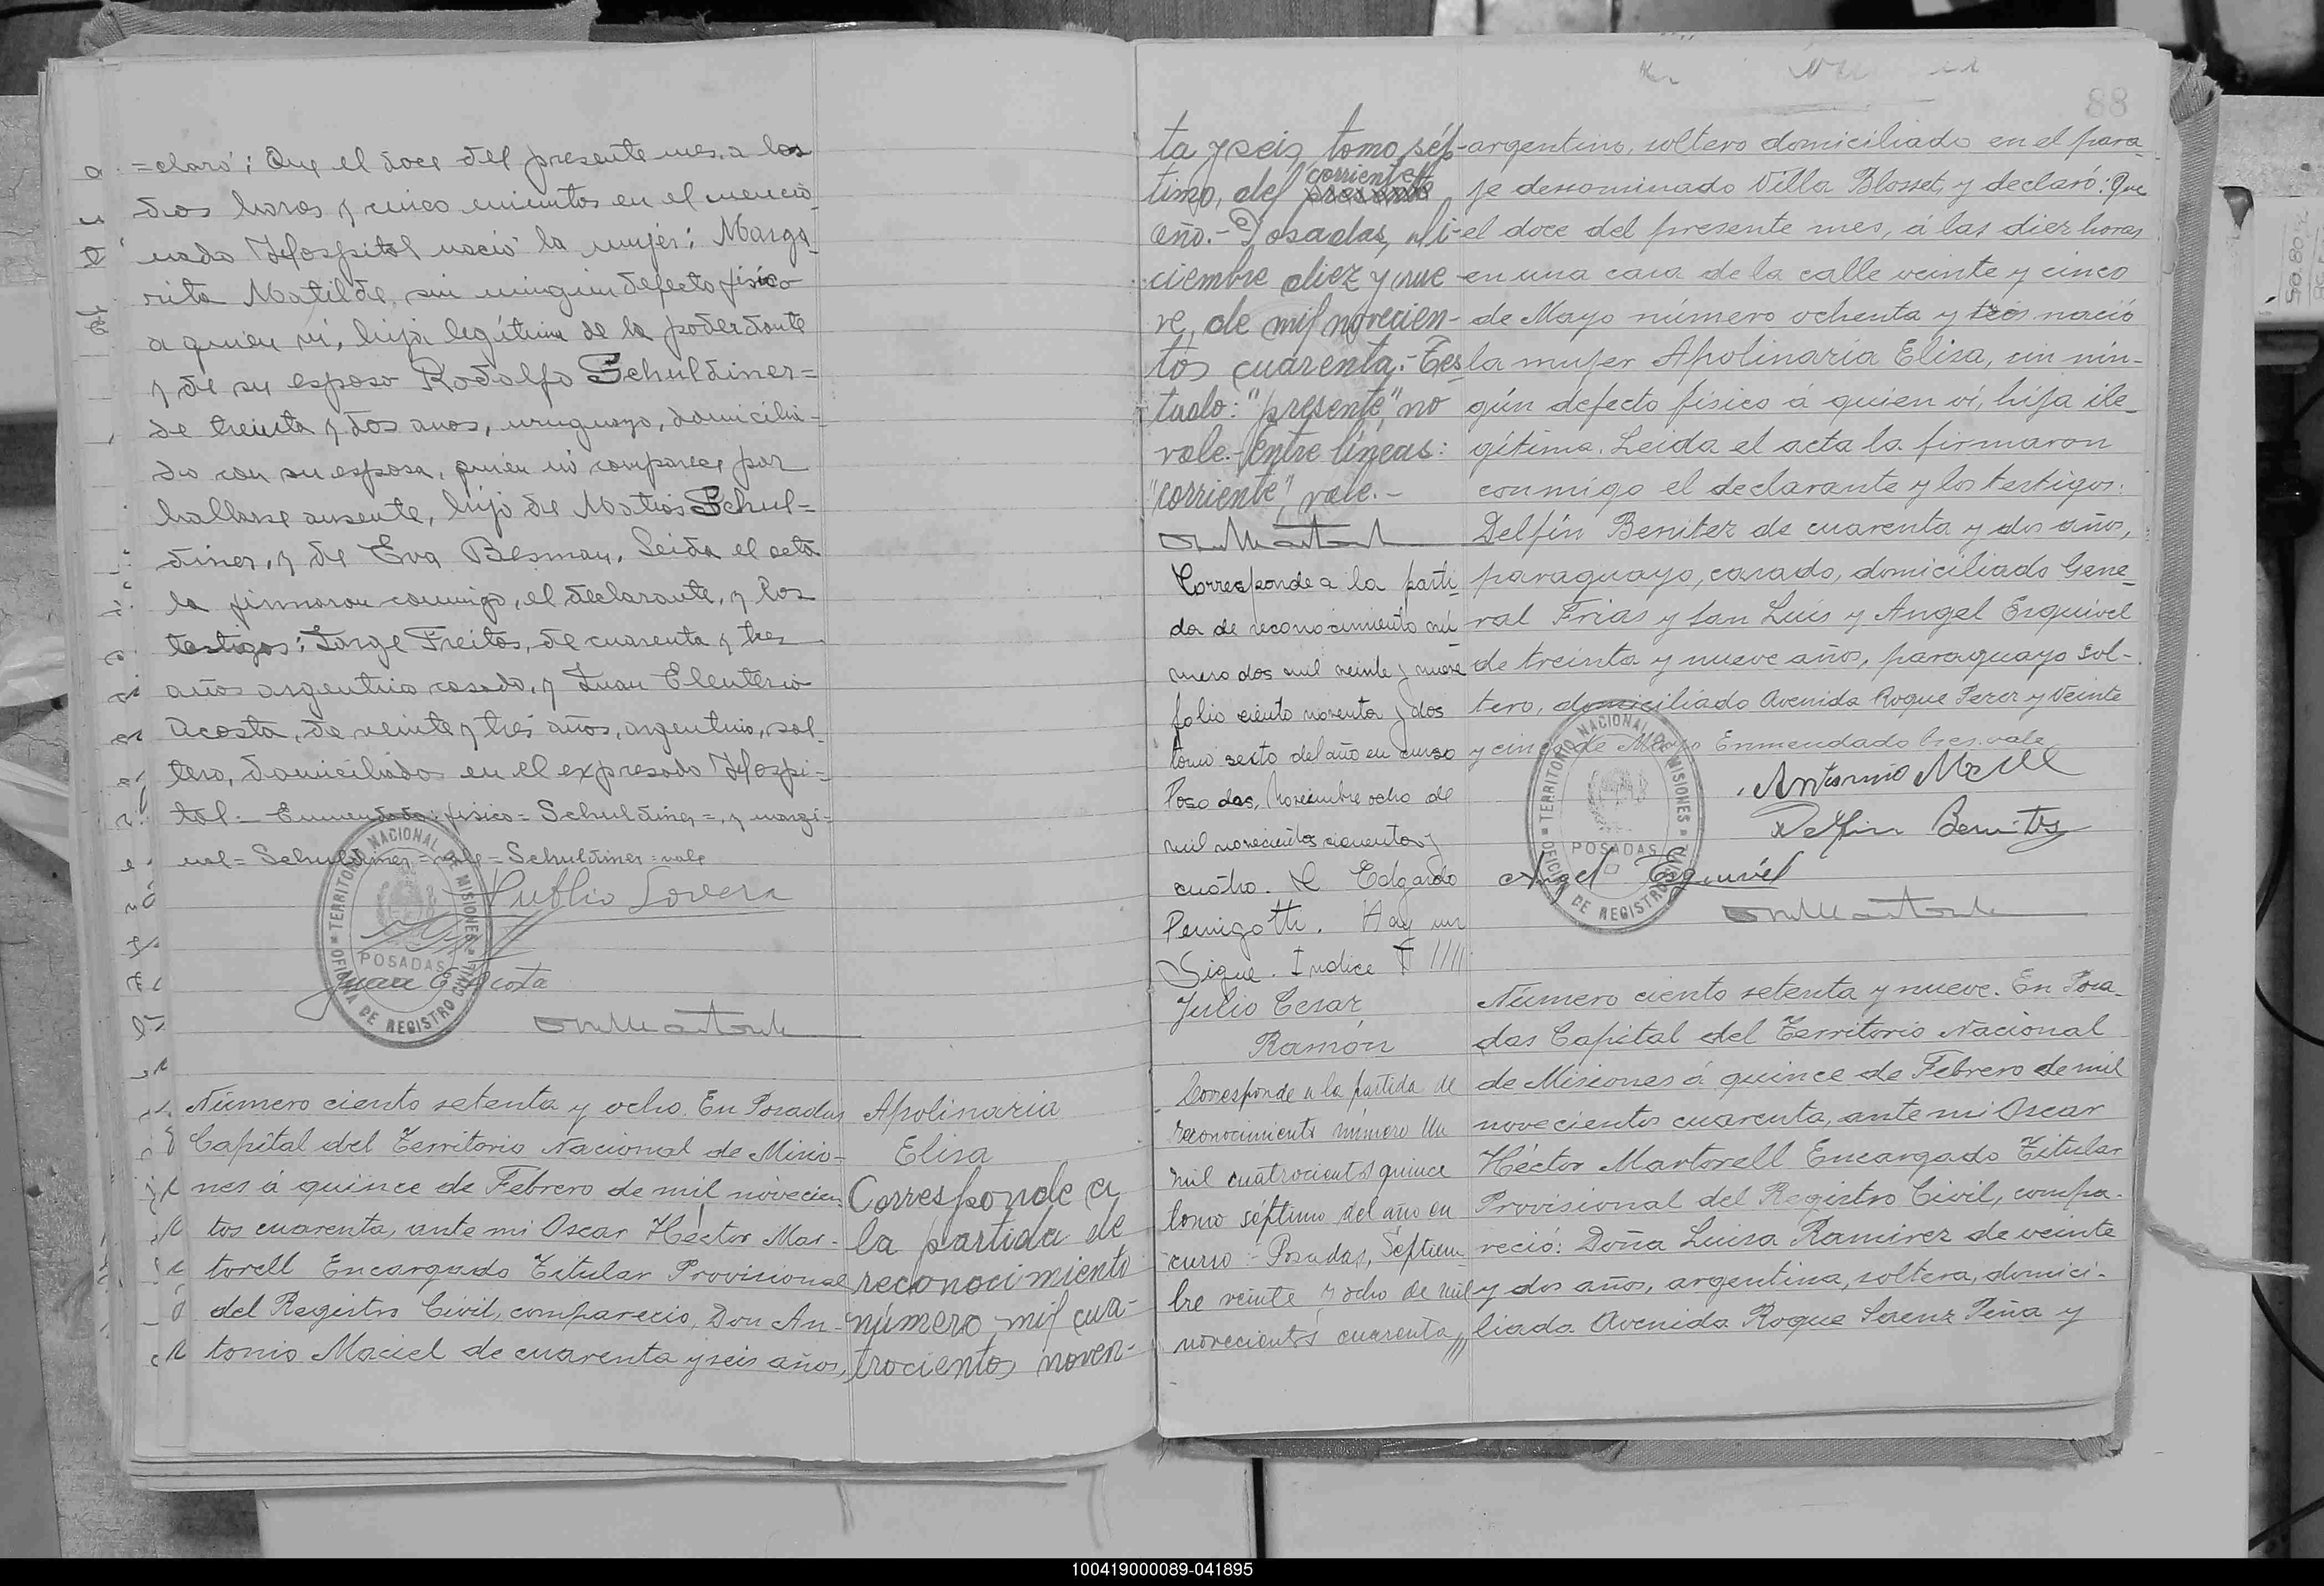 =claró: Que el doce del presente mes, a las
dos horas y cinco minutos en el mencio_
nado Hospital nació la mujer: Marga_
rita Matilde, sin ningun defecto físico
a quien vi, hija legítima de la poderdante
y de su esposo Rodolfo Schuldiner=
de treinta y dos anos, uruguayo, domicilia=
do con su esposa, quien no comparece por
hallarse ausente, hijo de Matias Schul=
diner, y de Eva Besman. Leida el acta
la firmaron conmigo, el declarante, y los
testigos: Jorge Freitas, de cuarenta y tres
años argentino casado, y Juan Eleuterio
Acosta, de veinte y tres años, argentino, sol_
tero, domiciliados en el expresado Hospi=
tal.- Enmendado: físico= Schuldiner=, y margi=
nal= Schuldiner=vale= Schuldiner=vale
Publio Lovera
Juan E Acosta
TERRITORIO NACIONAL DE MISIONES
POSADAS
OFICINA DE REGISTRO CIVIL
Número ciento setenta y ocho. En Posadas
Capital del Territorio Nacional de Misio=
nes á quince de Febrero de mil novecien_
tos cuarenta, ante mi Oscar Héctor Mar-
torell Encargado Titular Provisional
del Registro Civil, comparecio, Don An-
tonio Maciel de cuarenta y seis años,
Apolinaria
Elisa
Corresponde a
la partida de
reconocimiento
número mil cua-
trocientos noven-
88
ta y seis, tomo, sép-
corriente
timo, del presente
año.- Posadas, di-
ciembre diez y nue
ve, de mil novecien-
tos cuarenta.- Tes_
tado: "presente", no
vale.- Entre líneas:
"corriente", vale.-
Corresponde a la parti_
da de reconocimiento nú
mero dos mil veinte y nueve
folio ciento noventa y dos
tomo sexto del año en curso
Posadas, Noviembre ocho de
mil novecientos cincuenta y
cuatro. Edgardo
Perigotti. Hay un
Sigue. Indice
Julio Cesar
Ramón
Corresponde a la partida de
reconocimiento número Un
mil cuatrocientos quince
tomo séptimo del año en
curso - Posadas, Septiem_
bre veinte y ocho de mil
novecientos cuarenta
argentino, soltero domiciliado en el para_
je denominado Villa Blosset, y declaró: Que
el doce del presente mes, á las diez horas
en una casa de la calle veinte y cinco
de Mayo número ochenta y tres nació
la mujer Apolinaria Elisa, sin nin-
gún defecto físico á quien vi, hija ile_
gítima. Leida el acta la firmaron
conmigo el declarante y los testigos:
Delfín Benitez de cuarenta y dos años,
paraguayo, casado, domiciliado Gene_
ral Frias y San Luis y Angel Esquivel
de treinta y nueve años, paraguayo sol-
tero, domiciliado Avenida Roque Perez y Veinte
y cinco de Mayo Enmendado tres. vale
Antonio
Delfin Benitez
Angel Esquivél
TERRITORIO NACIONAL DE MISIONES
POSADAS
OFICINA DE REGISTRO CIVIL
Número ciento setenta y nueve. En Posa_
das Capital del Territorio Nacional
de Misiones á quince de Febrero de mil
novecientos cuarenta, ante mi Oscar
Héctor Martorell Encargado Titular
Provisional del Registro Civil, compa-
reció: Doña Luisa Ramirez de veinte
y dos años, argentina, soltera, domici-
liada Avenida Roque Saenz Peña y
100419000089-041895